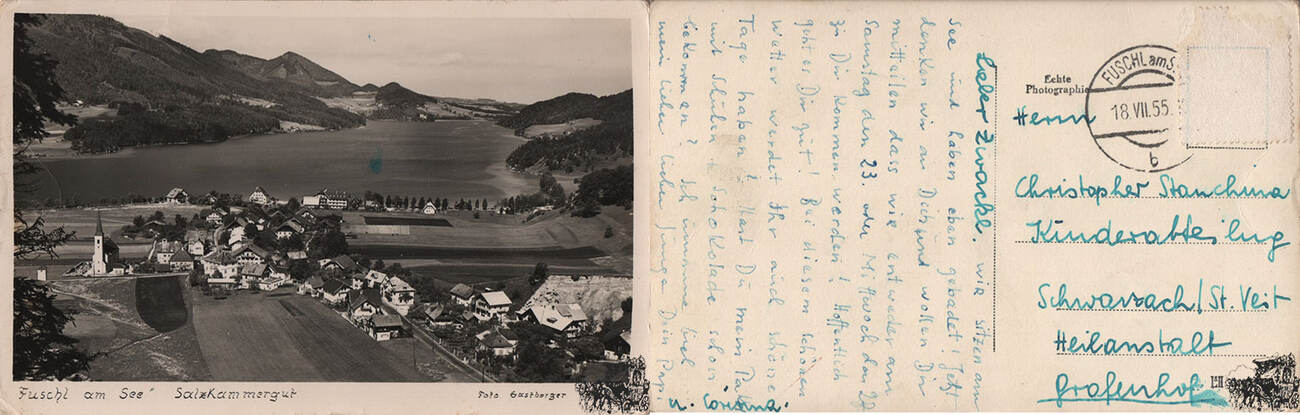 Fuschl am See Salzkammergut
Foto Gastberger
Lieber Zwackl. Wir sitzen am
See und haben eben gebadet! Jetzt
denken wir an Dich und wollen Dir
mitteilen dass wir entweder am
Samstag den 23. oder Mittwoch den 27
zu Dir kommen werden! Hoffentlich
geht es Dir gut! Bei diesem schönen
Wetter werdet Ihr auch schöne
Tage haben! Hast Du mein Pak
mit Schuhen u. Schokolade schon
bekommen? Ich umarme viel
mein lieber Junge Dein Papi
u. Corinna.
Echte
Photographie
FUSCHL am S
18.VII.55
b
Herrn
Christopher Stanchina
Kinderabteilug
Schwarzach/St. Veit
Heilanstalt
Grafenhof